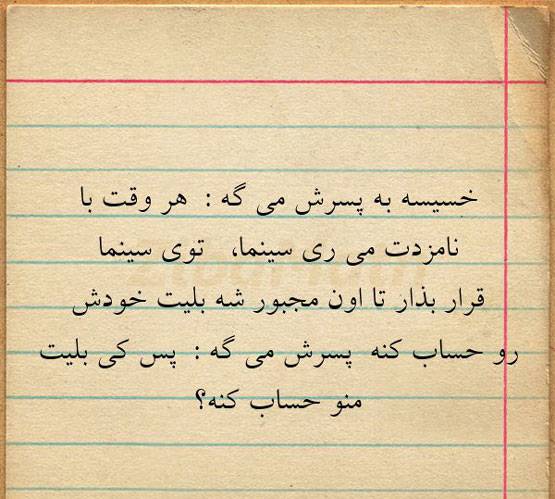 خسیسه به پسرش می گه : هر وقت با
نامزدت می ری سینما، توی سینما
قرار بذار تا اون مجبور شه بلیت خودش
رو حساب کنه پسرش می گه : پس کی بلیت
منو حساب کنه؟